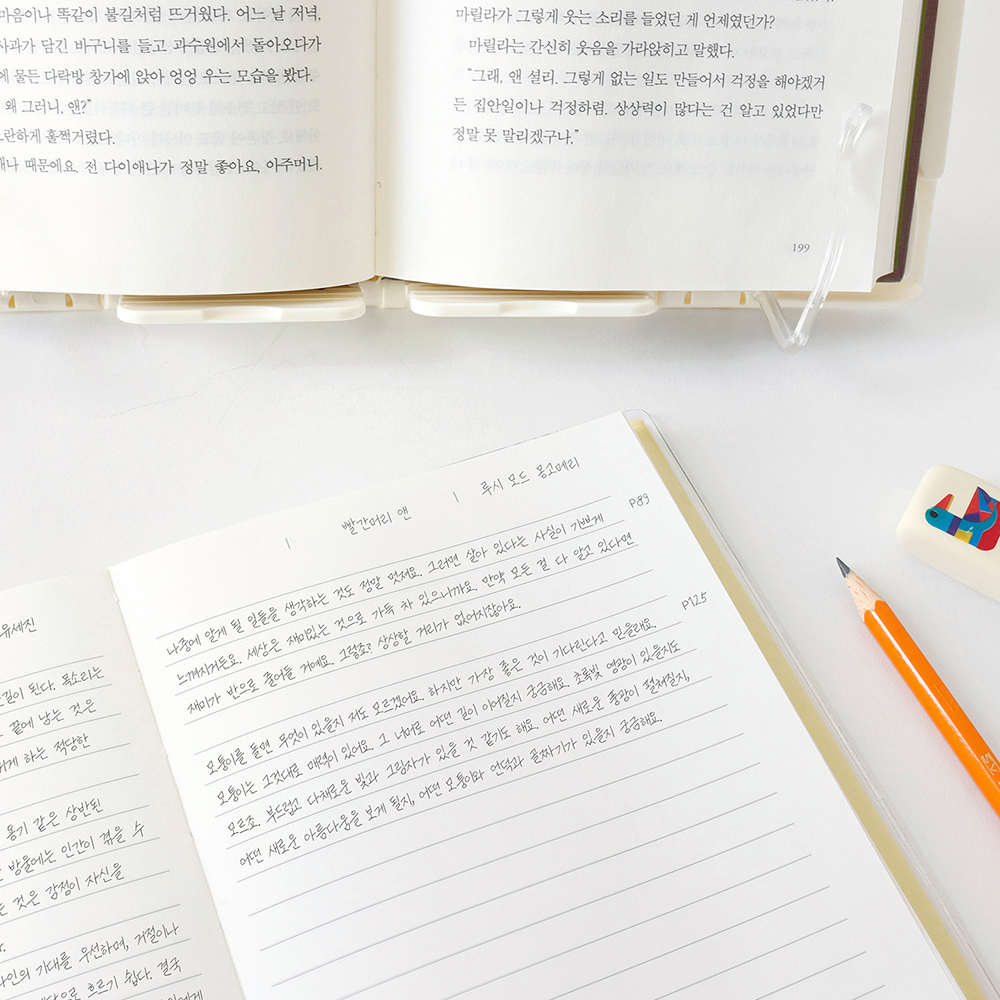 마음이나 똑같이 불길처럼 뜨거웠다. 어느 날 저녁,
사과가 담긴 바구니를 들고 과수원에서 돌아오다가
에 물든 다락방 창가에 앉아 엉엉 우는 모습을 봤다.
왜 그러니, 앤?"
란하게 훌쩍거렸다.
애나 때문에요. 전 다이애나가 정말 좋아요, 아주머니.
마릴라가 그렇게 웃는 소리를 들었던 게 언제였던가?
마릴라는 간신히 웃음을 가라앉히고 말했다.
"그래, 앤 셜리. 그렇게 없는 일도 만들어서 걱정을 해야겠거
든 집안일이나 걱정하렴. 상상력이 많다는 건 알고 있었다만
정말 못 말리겠구나."
199
유세진
길이 된다. 목소리는
끝에 남는 것은
하는 적당한
용기 같은 상반된
방울에는 인간이 겪을 수
것은 감정이 자신을
타인의 기대를 우선하며, 거절이나
흐르기 쉽다. 결국
빨간머리 앤 | 루시 모드 몽고메리
P89
나중에 알게 될 일들을 생각하는 것도 정말 멋져요. 그러면 살아 있다는 사실이 기쁘게
느껴지거든요. 세상은 재미있는 것으로 가득 차 있으니까요. 만약 모든 걸 다 알고 있다면
재미가 반으로 줄어들 거예요. 그렇죠? 상상할 거리가 없어지잖아요.
P125
모퉁이를 돌면 무엇이 있을지 저도 모르겠어요. 하지만 가장 좋은 것이 기다린다고 믿을래요.
모퉁이는 그것대로 매력이 있어요. 그 너머로 어떤 길이 이어질지 궁금해요. 초록빛 영광이 있을지도
모르죠. 부드럽고 다채로운 빛과 그림자가 있을 것 같기도 해요. 어떤 새로운 풍광이 펼쳐질지,
어떤 새로운 아름다움을 보게 될지, 어떤 모퉁이와 언덕과 골짜기가 있을지 궁금해요.